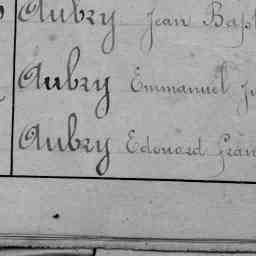 Aubry Jean Bapt
Aubry Emmanuel Ju
Aubry Edouard Fran